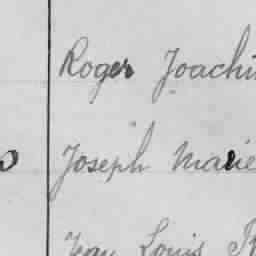 Roger Joachi
Joseph Marie
Jean Louis